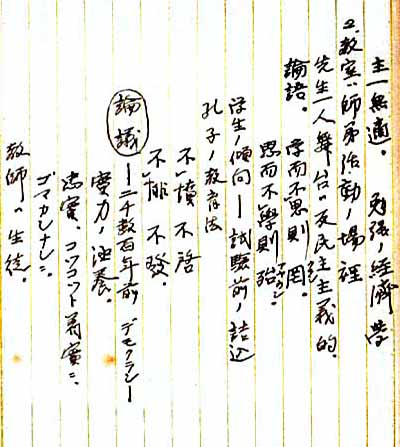 主一無適。 勉強ノ経済学
2.教室ハ師弟活動ノ場裡
先生一人舞台ハ反民主主義的。
論語。 学而不思則罔。
思而不學則殆
学生ノ傾向ー試験前ノ詰込
孔子ノ教育法
不憤 不啓
不悱 不發。
論議 ー二千数百年前 デモクラシー
實力ノ涵養。
忠實、コツコツト着實ニ、
ゴマカシナシニ。
教師ハ生徒。